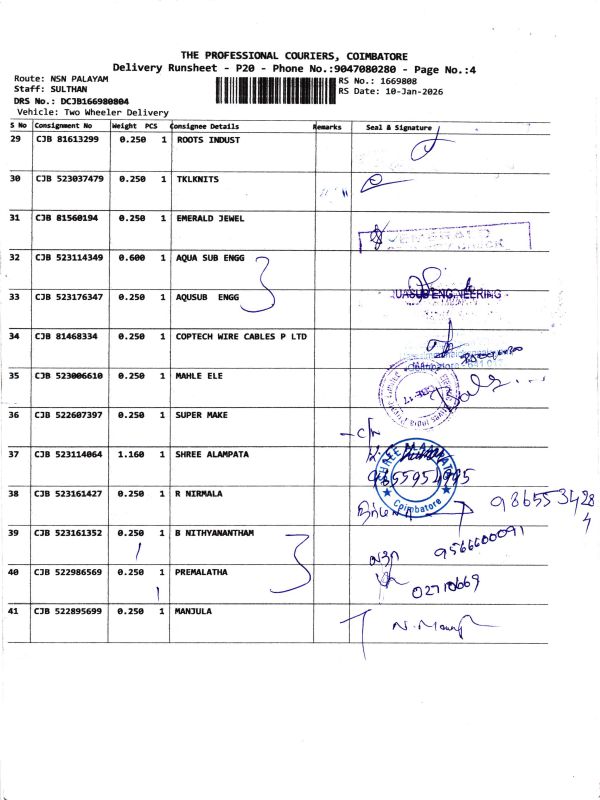 THE PROFESSIONAL COURIERS, COIMBATORE
Delivery Runsheet - P20 - Phone No.:9047080280 - Page No.:4
Route: NSN PALAYAM
RS No.: 1669808
Staff: SULTHAN
RS Date: 10-Jan-2026
DRS No.: DCJB166980804
Vehicle: Two Wheeler Delivery
S No Consignment No Weight PCS Consignee Details Remarks Seal & Signature
29 CJB 81613299 0.250 1 ROOTS INDUST
30 CJB 523037479 0.250 1 TKLKNITS
31 CJB 81560194 0.250 1 EMERALD JEWEL
32 CJB 523114349 0.600 1 AQUA SUB ENGG
33 CJB 523176347 0.250 1 AQUSUB ENGG
UASUB ENGINEERING
34 CJB 81468334 0.250 1 COPTECH WIRE CABLES P LTD
35 CJB 523006610 0.250 1 MAHLE ELE
36 CJB 522607397 0.250 1 SUPER MAKE
37 CJB 523114064 1.160 1 SHREE ALAMPATA
98655954995
Coimbatore
38 CJB 523161427 0.250 1 R NIRMALA
39 CJB 523161352 0.250 1 B NITHYANANTHAM
9566600091
40 CJB 522986569 0.250 1 PREMALATHA
02710669
41 CJB 522895699 0.250 1 MANJULA